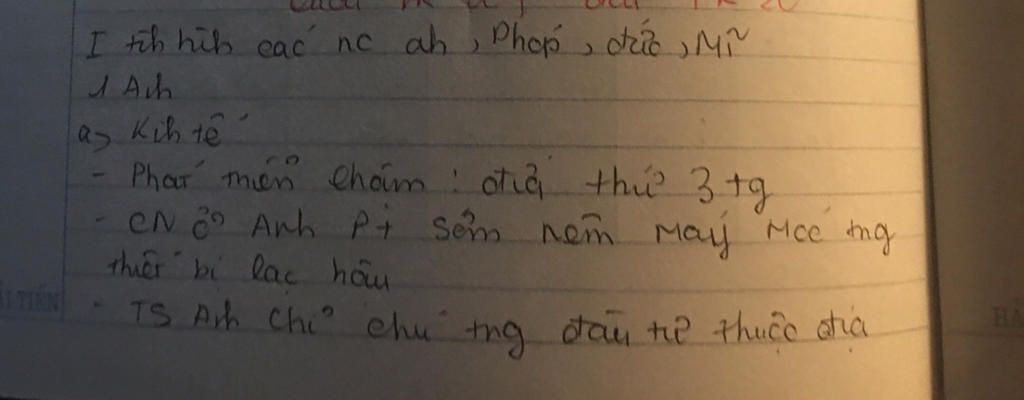 I tìh hìh các nc ah, Pháp, đức, Mĩ
1 Anh
a) Kih tế
- Phát triển chậm: đứg thứ 3 tg
- CN ở Anh PT sớm nêm máy móc trng
thiết bị lạc hậu
- TS Anh chỉ chú trng đầu tư thuộc địa